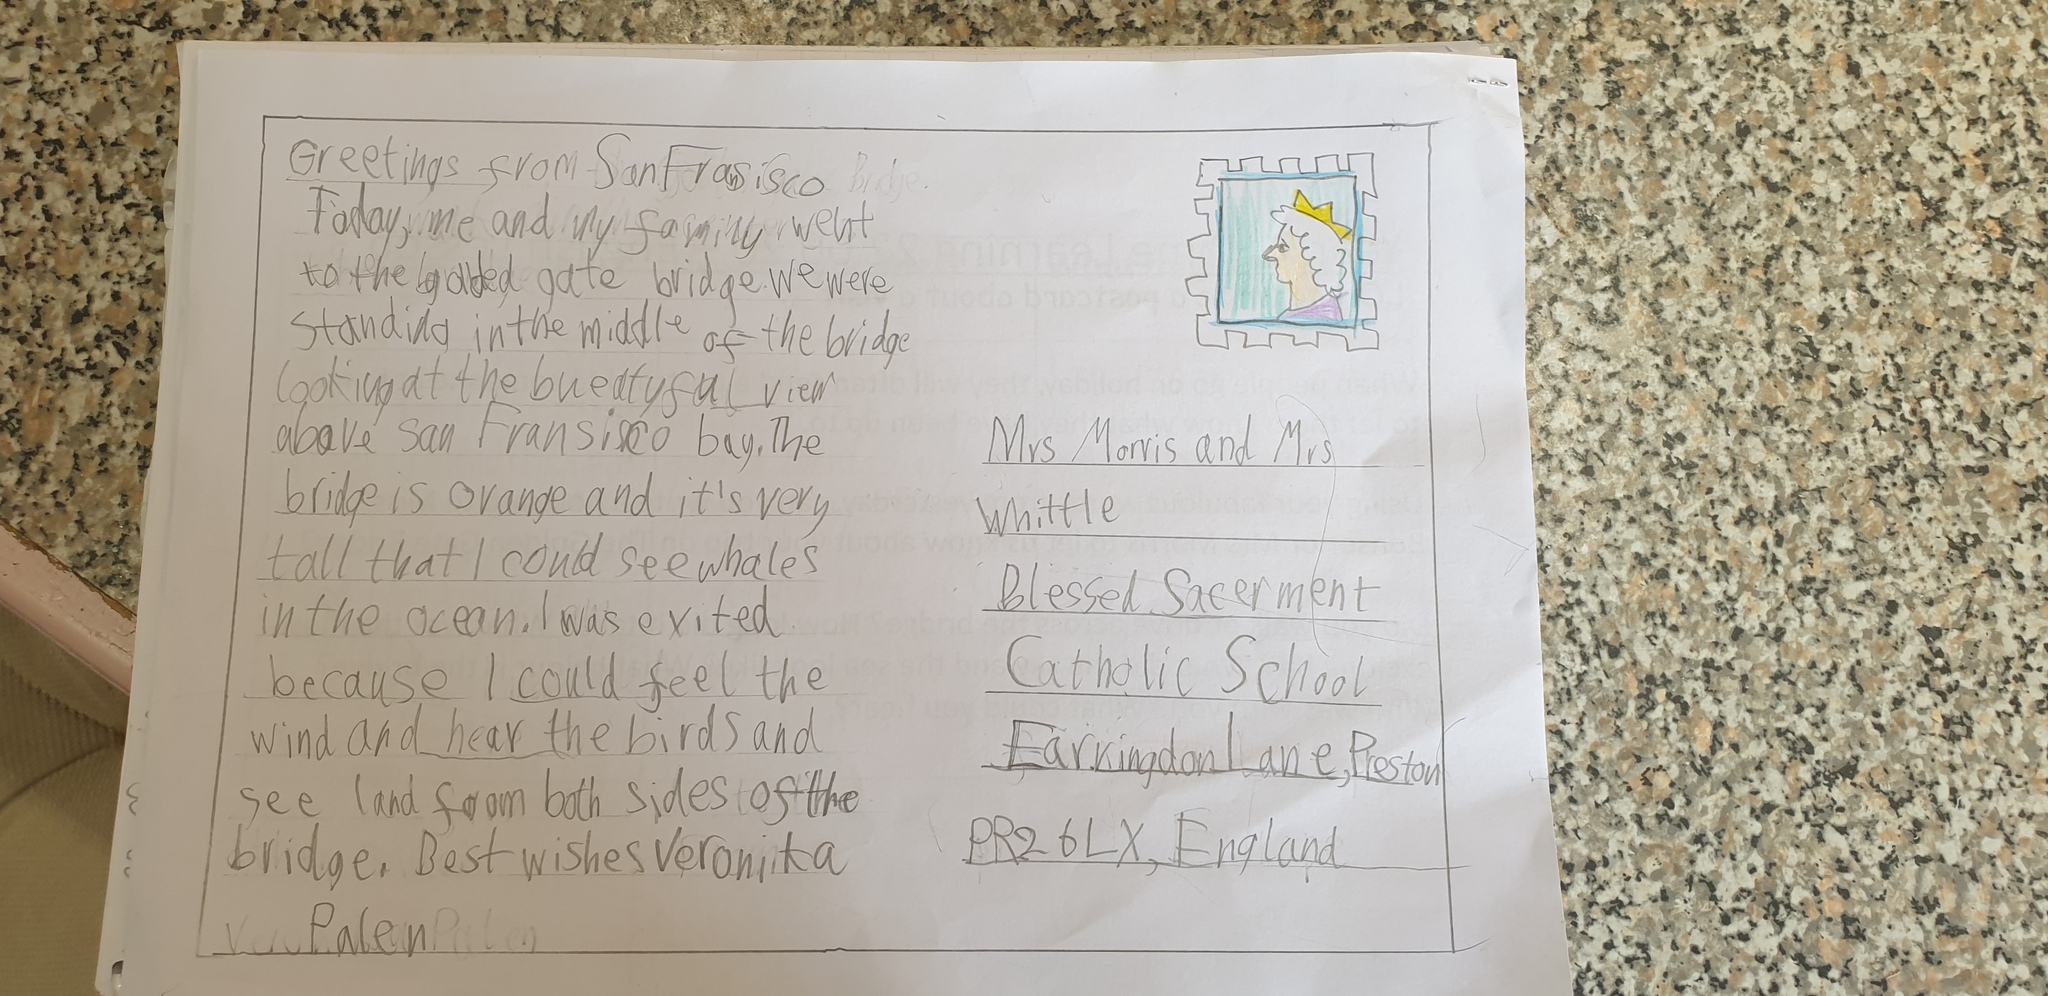 Greetings from San Fransisco
Today, me and my family went
to the golded gate bridge. We were
standing in the middle of the bridge
looking at the bueatyful view
above San Fransisco bay. The
bridge is orange and it's very
tall that I could see whales
in the ocean. I was exited
because I could feel the
wind and hear the birds and
see land from both sides of the
bridge. Best wishes Veronika
Palen
Mrs Morris and Mrs
Whittle
Blessed Sacerment
Catholic School
Farringdon Lane, Preston
PR2 6LX, England